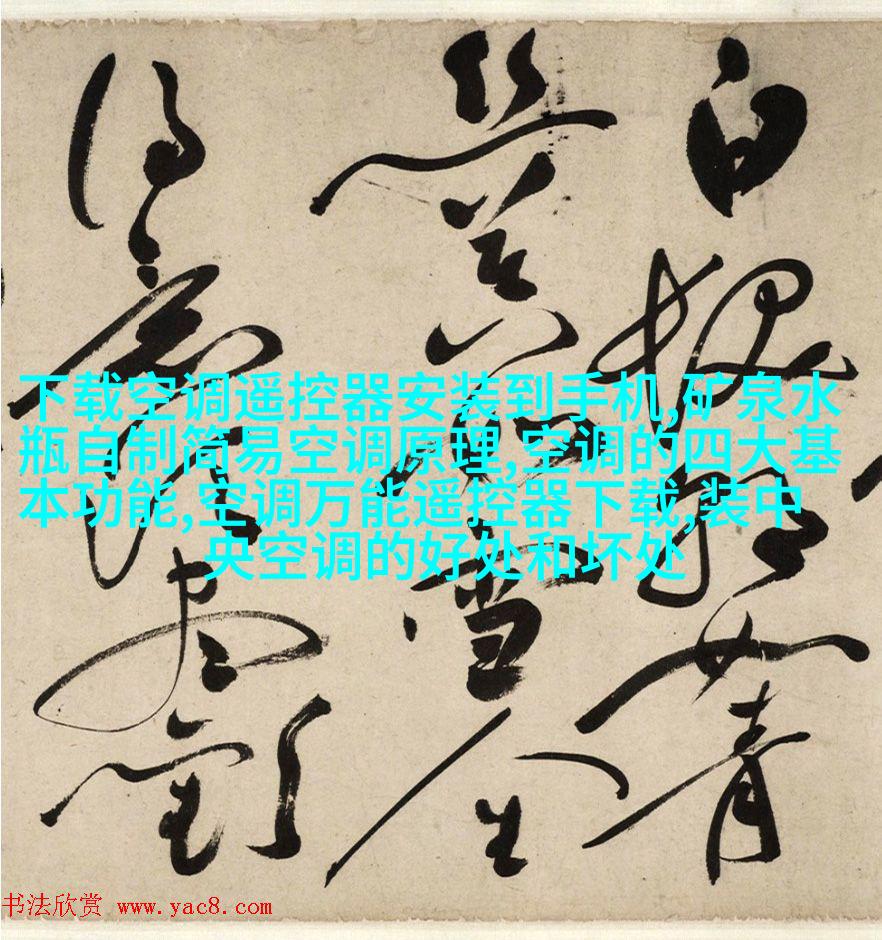 白髮朝如青
絲暮成雪人生
得意須盡歡
下载空调遥控器安装到手机,矿泉水
瓶自制简易空调原理,空调的四大基
本功能,空调万能遥控器下载,装中
央空调的好处和坏处
书法欣赏 www.yac8.com